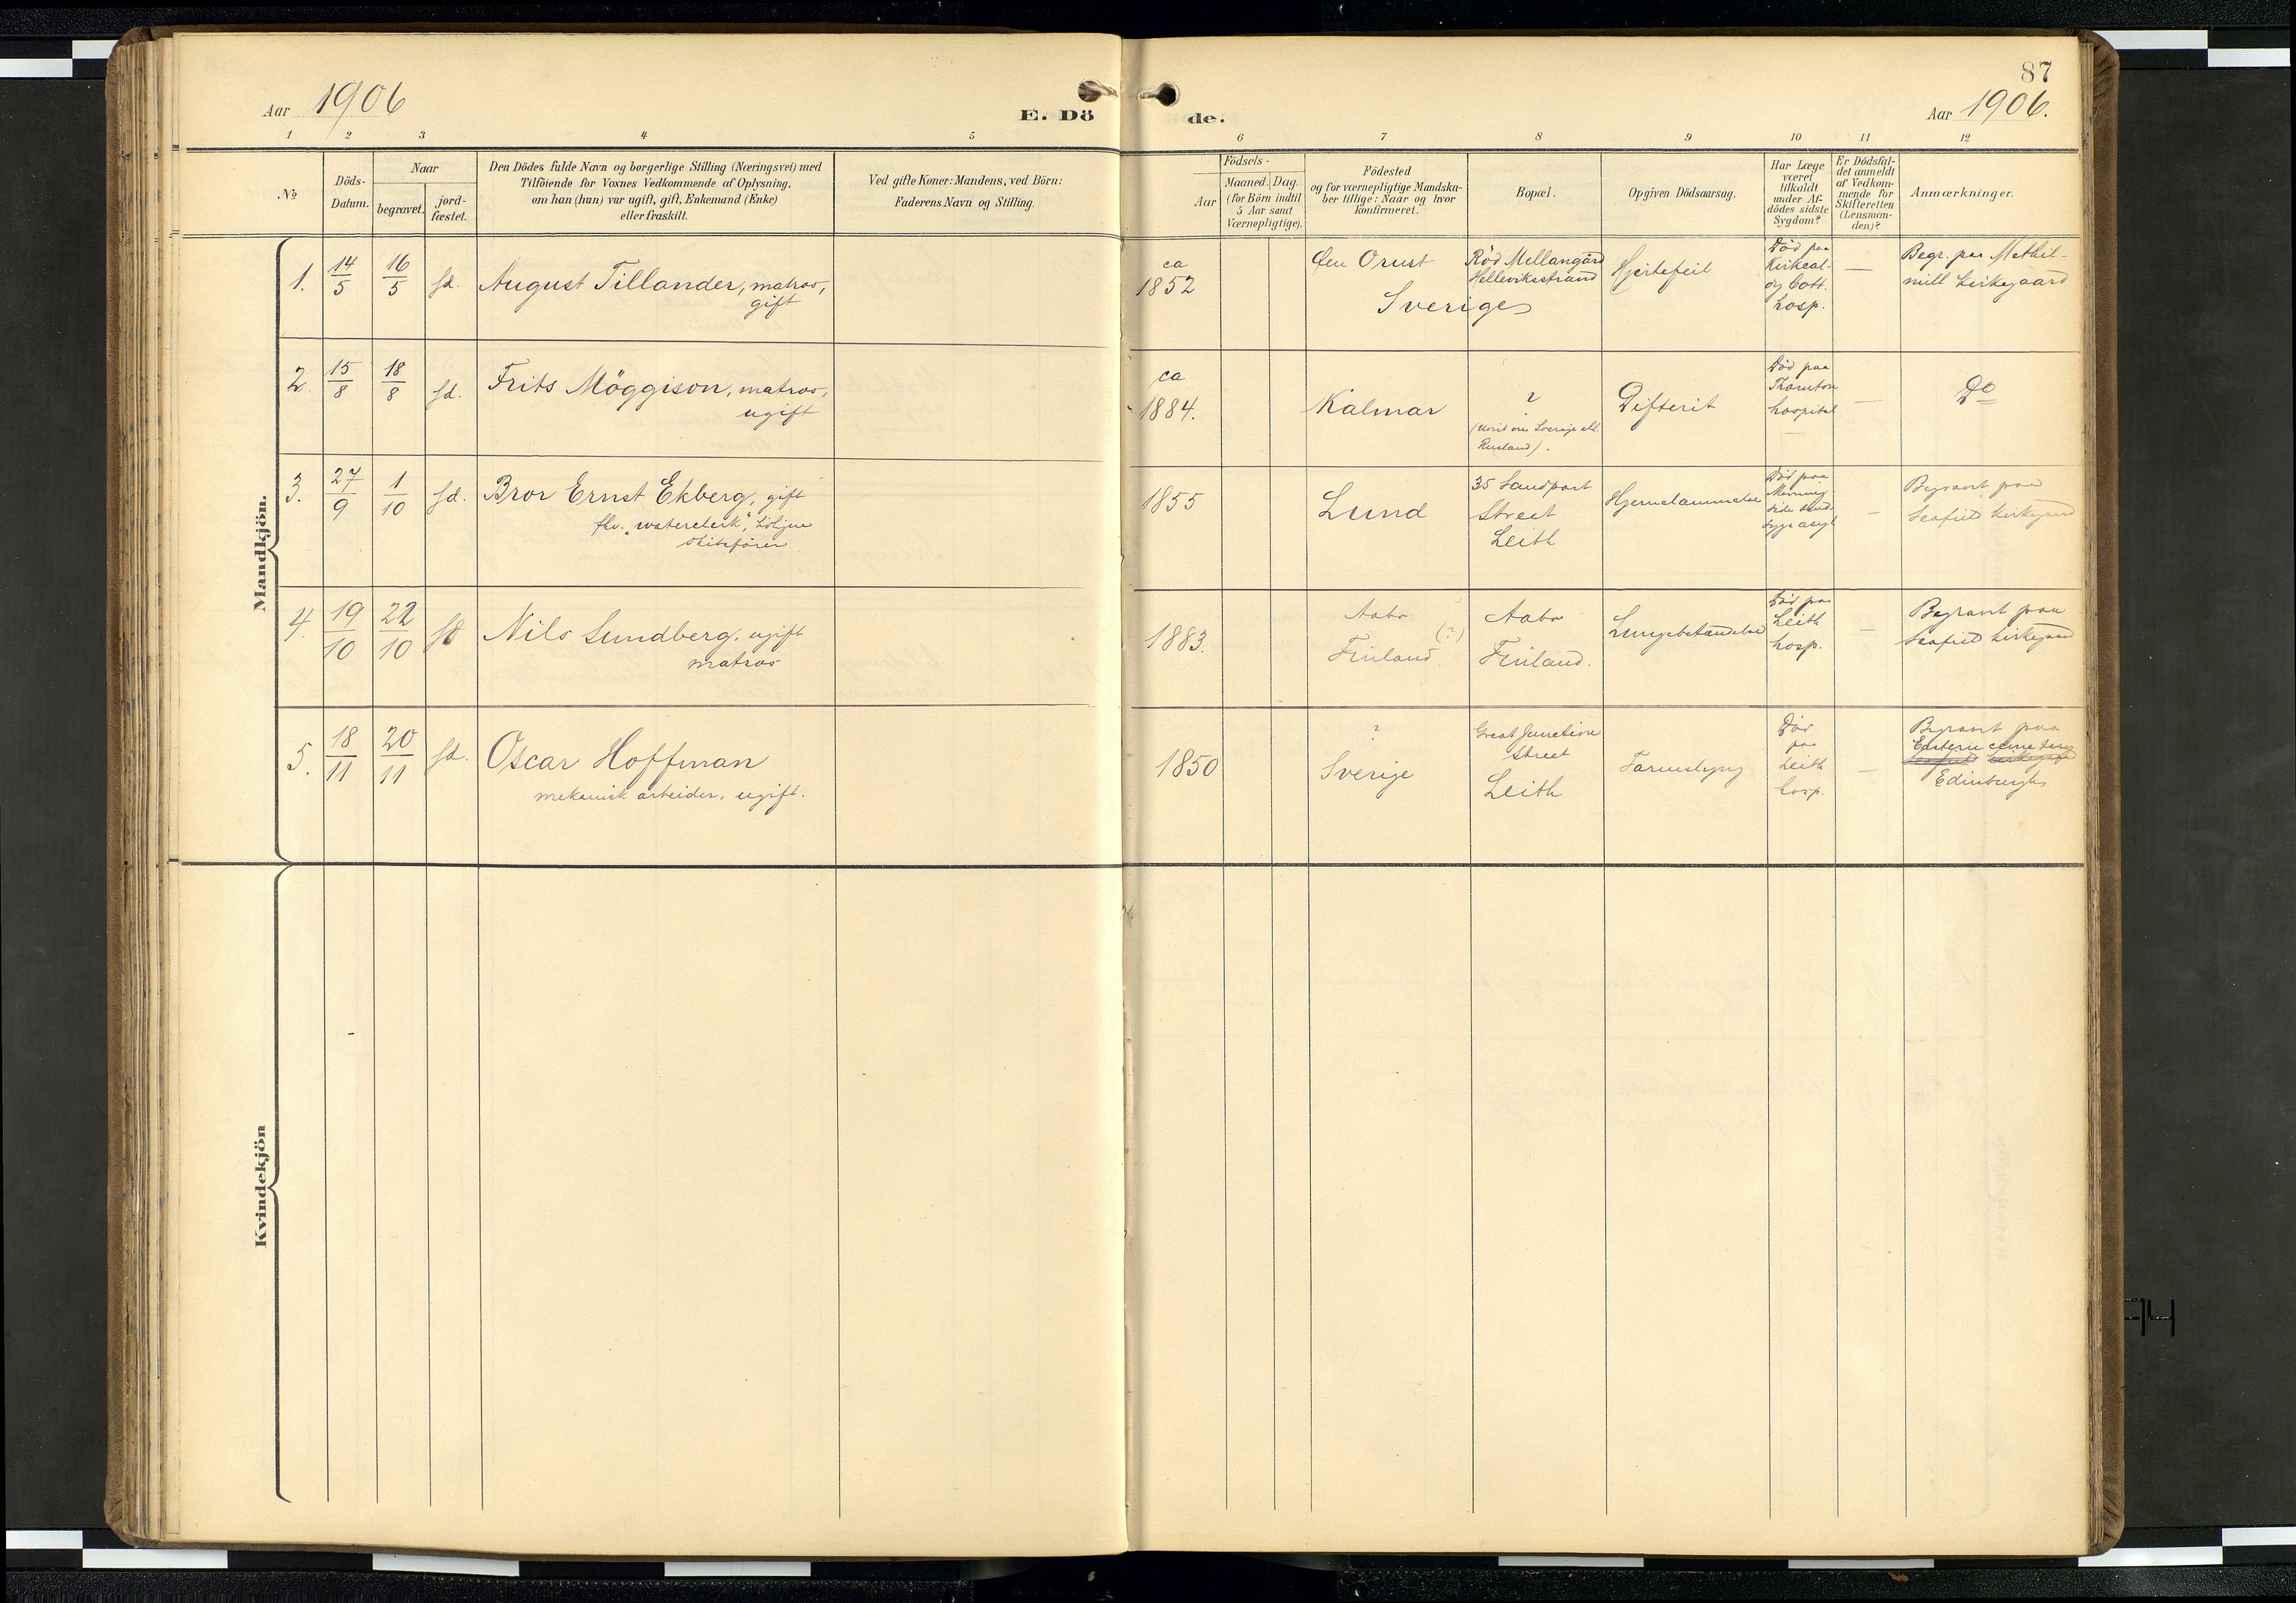 87
Aar 1906
E. Dö
de.
Aar 1906.
1 2 3 4 5
6 7 8 9 10 11 12
No
Döds-
Datum.
Naar
begravet.
jord-
fæstet.
Den Dödes fulde Navn og borgerlige Stilling (Næringsvei) med
Tilföiende for Voxnes Vedkommende af Oplysning,
om han (hun) var ugift, gift, Enkemand (Enke)
eller fraskilt.
Ved gifte Koner: Mandens, ved Börn:
Faderens Navn og Stilling.
Födsels-
Aar
Maaned. Dag.
(for Börn indtil
5 Aar samt
Værnepligtige).
Födested
og for værnepligtige Mandska-
ber tillige: Naar og hvor
konfirmeret.
Bopæl.
Opgiven Dödsaarsag.
Har Læge
været
tilkaldt
under Af-
dödes sidste
Sygdom?
Er Dödsfal-
det anmeldt
af Vedkom-
mende for
Skifteretten
(Lensman-
den)?
Anmærkninger.
Mandkjön.
1. 14/5 16/5 sd. August Tillander, matros,
gift
ca
1852
Øen Orust
Sverige
Röd Mellangård
Hellevikstrand
Hjertefeil
Död paa
Kirkcal-
dy Cott.
hosp.
—
Begr. paa Methil-
mill kirkegaard
2. 15/8 18/8 sd. Frits Möggison, matros,
ugift
ca
1884.
Kalmar
?
(uvist om Sverige ell.
Rusland).
Difterit
Död paa
Thornton
hospital
—
Do
3. 27/9 1/10 sd. Bror Ernst Ekberg, gift
fhv. "waterclerk",
skibsförer
1855
Lund
35 Sandport
Street
Leith
Död paa
—
Begravet paa
Seafield kirkegaard
4. 19/10 22/10 sd Nils Lundberg, ugift
matros
1883.
Aabo
(?)
Finland
Aabo
Finland.
Lungebetændelse
Död paa
Leith
hosp.
—
Begravet paa
Seafield kirkegaard
5. 18/11 20/11 sd. Oscar Hoffman
mekanisk arbeider, ugift.
1850
?
Sverige
Great Junction
Street
Leith
Död
paa
Leith
hosp.
—
Begravet paa
Eastern cemetery
Seafield kirkegaard
Edinburgh
Kvindekjön